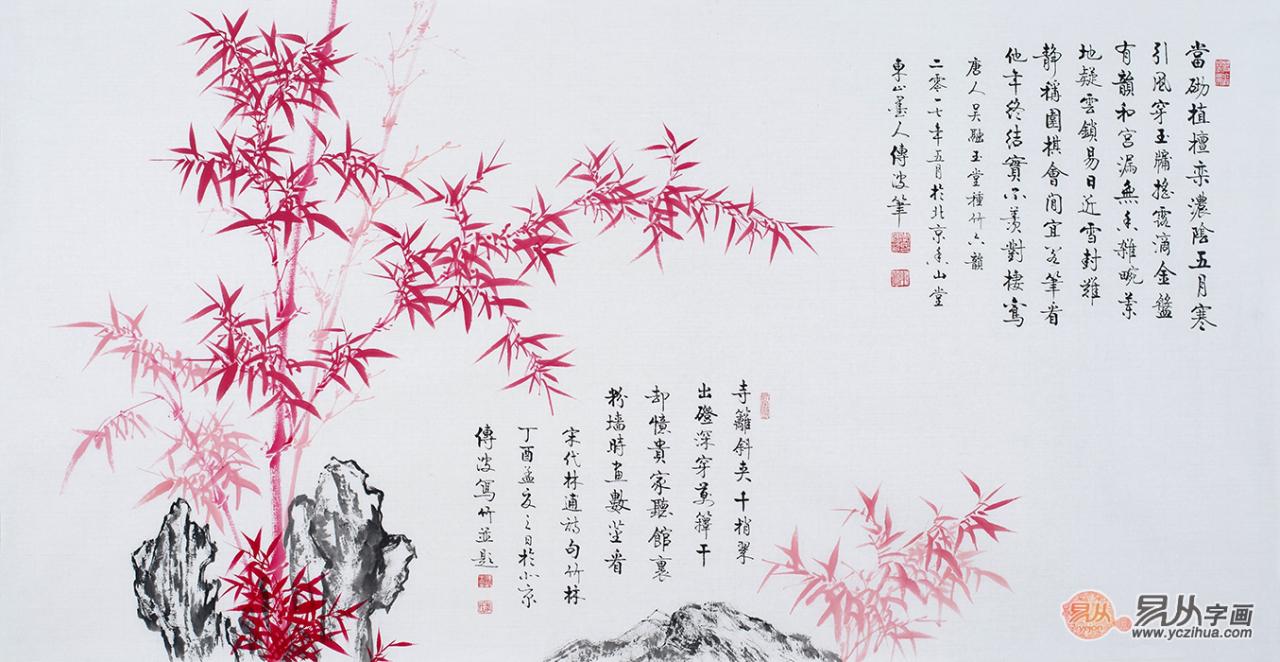 當砌植檀栾濃陰五月寒
引風穿玉牖搖露滴金盤
有韻和宮漏無香雜畹
地疑雲鎖易日近雪封難
静稱圍棋會閒宜筆看
他年終结實不羡對棲鸞
唐人吴融玉堂種竹六韻
二零一七年五月於北京香山堂
東山墨人傳波筆
寺籬斜夹千梢翠
出磴深穿萬籜干
却憶貴家聽館裏
粉墙時畫數莖看
宋代林逋詩句竹林
丁酉孟夏之日於北京
傳波寫竹並題
易从
易从字画
www.yczihua.com